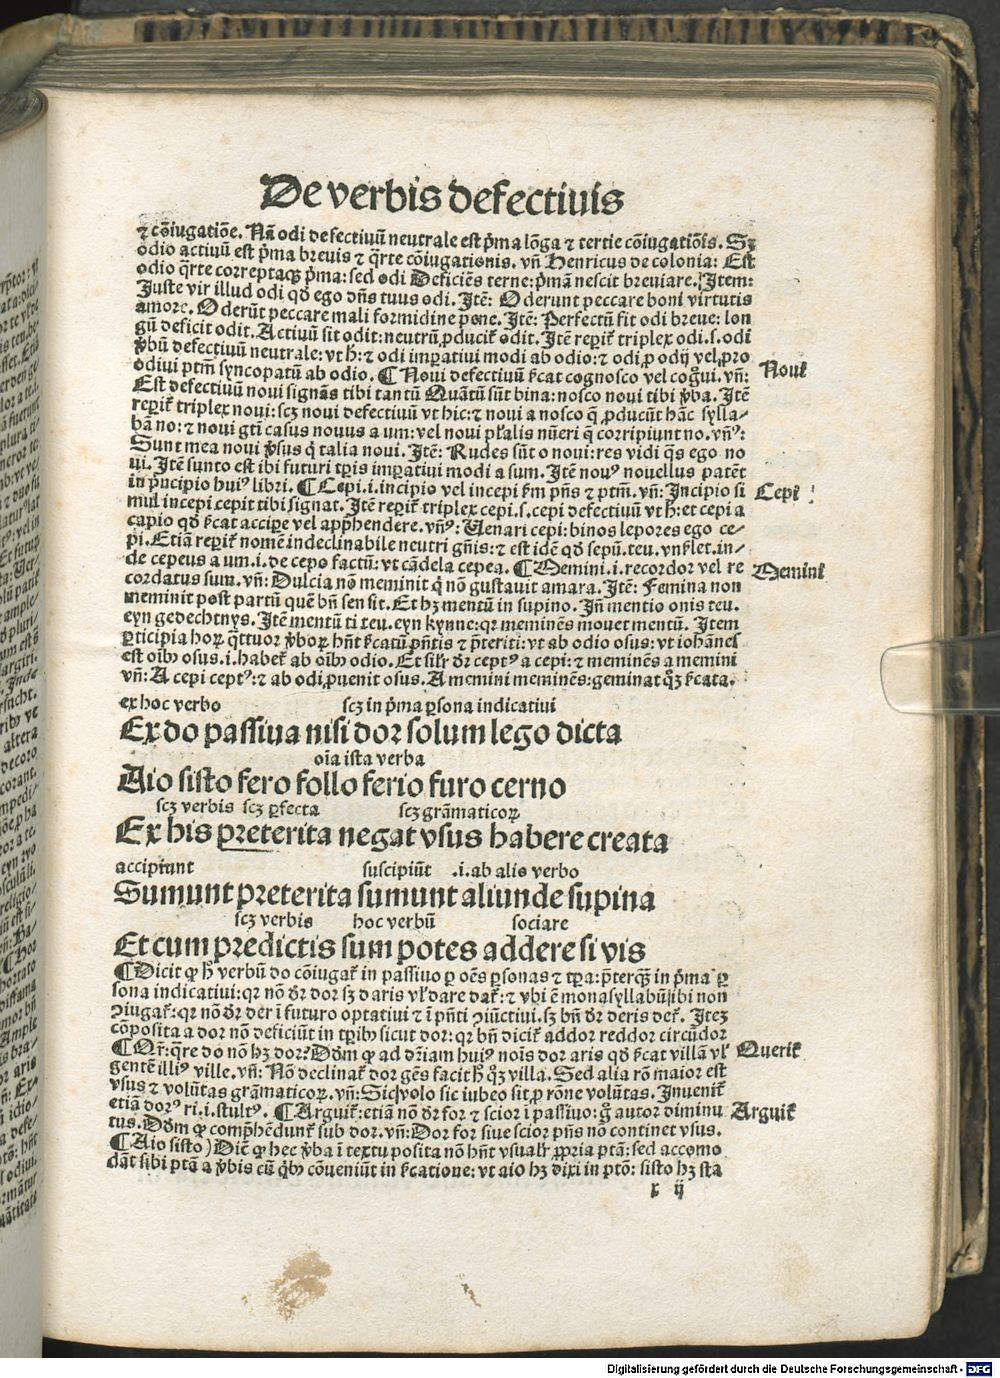 De verbis defectiuis
⁊ cōiugatiōe. Nā odi defectiuū neutrale est p̄ma lōga ⁊ tertie cōiugatiōis. Sz
odio actiuū est p̄ma breuis ⁊ q̄rte cōiugationis. vn̄ Henricus de colonia: Est
odio q̄rte correptaqꝫ p̄ma: sed odi Deficiēs terne: p̄mā nescit breuiare. Item:
Juste vir illud odi qd̄ ego dn̄s tuus odi. Itē: Oderunt peccare boni virtutis
amore. Oderūt peccare mali formidine pene. Itē: Perfectū fit odi breue: lon
gū deficit odit. Actiuū sit odit: neutrū ꝓducit᷑ odit. Itē reperit᷑ triplex odi. s. odi
v̄bū defectiuū neutrale: vt h̄: ⁊ odi imꝑatiui modi ab odio: ⁊ odi ꝓ odij vel ꝓ pro
odiui ptm̄ syncopatū ab odio. ¶ Noui defectiuū ſcat cognosco vel cog͛ui. vn̄:
Est defectiuū noui signās tibi tantū Quātū sūt bina: nosco noui tibi v̄ba. Itē
reperit᷑ triplex noui: scꝫ noui defectiuū vt hic: ⁊ noui a nosco q̄ ꝓducūt hāc sylla-
bā no: ⁊ noui gtī casus nouus a um: vel noui pl̄alis nūeri q̄ corripiunt no. vn̄ꝰ:
Sunt mea noui v̄sus q̄ talia noui. Itē: Rudes sūt o noui: res vidi q̄s ego no
ui. Itē sunto est ibi futuri tꝑis imꝑatiui modi a sum. Itē nouꝰ nouellus patēt
in p̄ncipio huiꝰ libri. ¶ Cepi. i. incipio vel incepi ẜm pn̄s ⁊ ptm̄. vn̄: Incipio si
mul incepi cepit tibi signat. Itē reperit᷑ triplex cepi. s. cepi defectiuū vt h̄: et cepi a
capio qd̄ ſcat accipe vel app̄hendere. vn̄ꝰ: Uenari cepi: binos lepores ego ce-
pi. Etiā reperit᷑ nomē indeclinabile neutri gn̄is: ⁊ est idē qd̄ sepū. teu. vnſlet. in-
de cepeus a um. i. de cepo factū: vt cādela cepea. ¶ Memini. i. recordor vel re
cordatus sum. vn̄: Dulcia nō meminit q̄ nō gustauit amara. Itē: Femina non
meminit post partū quē bn̄ sensit. Et hꝫ mentū in supino. Jn̄ mentio onis teu.
eyn gedechtnys. Itē mentū ti teu. eyn kynne: qꝛ meminēs mouet mentū. Item
ꝑticipia hoꝝ q̄ttuor v̄boꝝ hn̄t ſcatū p̄ntis ⁊ p̄teriti: vt ab odio osus: vt iohānes
est oībꝰ osus. i. habet᷑ ab oībꝰ odio. Et silr̄ dr̄ ceptꝰ a cepi: ⁊ meminēs a memini
vn̄: A cepi ceptꝰ: ⁊ ab odi ꝓuenit osus. A memini meminēs: geminat q̄ꝫ ſcata.
ex hoc verbo scꝫ in p̄ma ꝑsona indicatiui
Ex do passiua nisi dor solum lego dicta
oīa ista verba
Aio sisto fero follo ferio furo cerno
scꝫ verbis scꝫ ꝑfecta scꝫ grāmaticoꝝ
Ex his preterita negat vsus habere creata
accipiunt suscipiūt .i. ab alio verbo
Sumunt preterita sumunt aliunde supina
scꝫ verbis hoc verbū sociare
Et cum predictis sum potes addere si vis
¶ Dicit ꝙ h̄ verbū do cōiugat᷑ in passiuo ꝑ oēs ꝑsonas ⁊ tꝑa: p̄terqꝫ in p̄ma ꝑ
sona indicatiui: qꝛ nō dr̄ dor sꝫ daris vl̄ dare dat᷑: ⁊ vbi ē monasyllabū ibi non
ꝯiugat᷑: qꝛ nō dr̄ der ī futuro optatiui ⁊ ī pn̄ti ꝯiūctiui. sꝫ bn̄ dr̄ deris det᷑. Iteꝫ
cōposita a dor nō deficiūt in tꝑibꝰ sicut dor: qꝛ bn̄ dicit᷑ addor reddor circūdor
¶ Qr̄: q̄re do nō hꝫ dor? Dōm ꝙ ad dr̄iam huiꝰ nois dor aris qd̄ ſcat villā vl̄
gentē illiꝰ ville. vn̄: Nō declinat᷑ dor gēs facit h̄ q̄ꝫ villa. Sed alia rō maior est
vsus ⁊ volūtas grāmaticoꝝ. vn̄: Sic volo sic iubeo sit ꝓ rōne volūtas. Inuenit᷑
etiā dorꝰ ri. i. stultꝰ. ¶ Arguit᷑: etiā nō dr̄ for ⁊ scior ī passiuo: g͛ autor diminu
tus. Dōm ꝙ comp̄hēdunt᷑ sub dor. vn̄: Dor for siue scior pn̄s nō continet vsus.
¶ Aio sisto) Dicit ꝙ hec v̄ba ī textu posita nō hn̄t vsualr̄ ꝓpria ptā: sed accomo
dāt sibi ptā a v̄bis cū q̄bꝰ cōueniūt in ſcatione: vt aio hꝫ dixi in ptō: sisto hꝫ sta
x ij
Nouit᷑
Cepi
Memini
Querit᷑
Arguit᷑
Digitalisierung gefördert durch die Deutsche Forschungsgemeinschaft - DFG